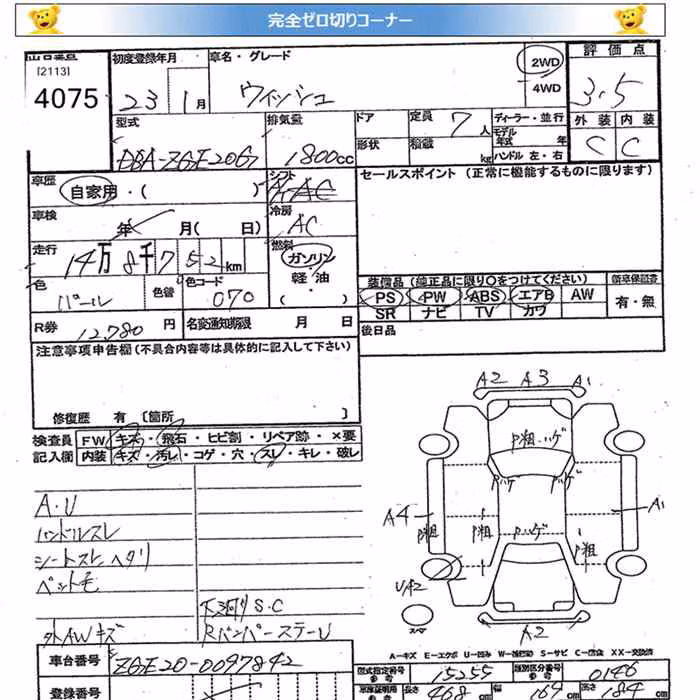 完全ゼロ切りコーナー
[2113]
4075
初度登録年月
23 1月
車名・グレード
ウィッシュ
2WD
4WD
評価点
3.5
外装 内装
C C
型式
DBA-ZGE20G
排気量
1800cc
ドア
形状
定員 7人
積載 kg
ディーラー・並行
モデル年式 年
ハンドル 左・右
車歴
自家用・( )
シフト
冷房
AC
セールスポイント (正常に機能するものに限ります)
車検
年 月( 日)
走行
14万8千752km
燃料
ガソリン
軽油
( )
色
パール
色替
色コード
070
装備品(純正品に限り○をつけてください)
PS PW ABS エアB AW
SR ナビ TV カワ
新車保証書
有・無
R券 12,780円
名変通知期限 月 日
後日品
注意事項申告欄(不具合内容等は具体的に記入して下さい)
修復歴 有 〔箇所 〕
検査員記入欄
FW キズ・飛石・ヒビ割・リペア跡・×要
内装 キズ・汚レ・コゲ・穴・スレ・キレ・破レ
A.U
ハンドルスレ
シートスレ、ヘタリ
ペット毛
下回りS.C
外AWキズ
RバンパーステーU
A2 A3 A1
P粗.ハゲ
Pハゲ Pハゲ
A4 P粗 P粗 Pハゲ P粗 A1
UA2
スペア
A2
A-キズ E-エクボ U-凹み W-補修跡 S-サビ C-腐食 XX-交換済
車台番号
ZGE20-0097842
型式指定番号 参考
15255
類別区分番号 参考
0146
登録番号
車庫証明用 参考
長さ 468cm 幅 169cm 高さ 184cm